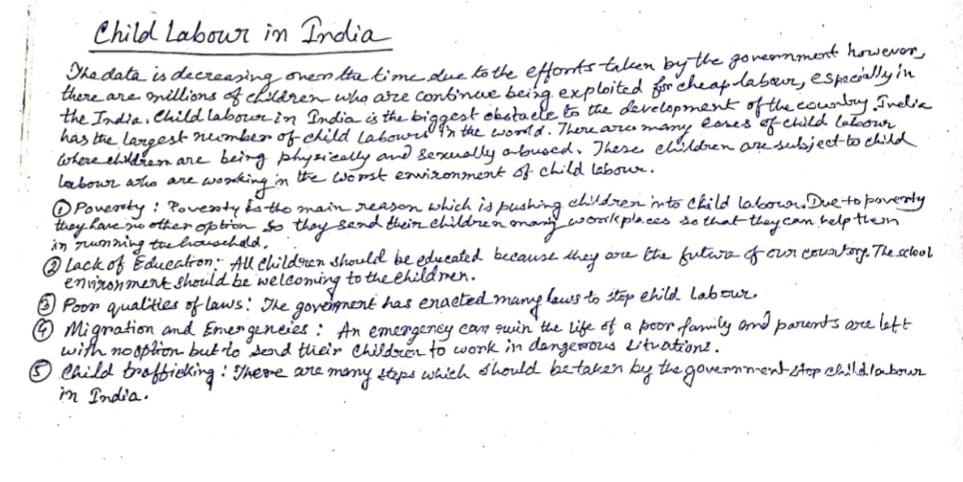 Child Labour in India
The data is decreasing over the time due to the efforts taken by the government however,
there are millions of children who are continue being exploited for cheap labour, especially in
the India. Child labour in India is the biggest obstacle to the development of the country. India
has the largest number of child labours in the world. There are many cases of child labour
where children are being physically and sexually abused. These children are subject to child
labour who are working in the worst environment of child labour.
① Poverty : Poverty is the main reason which is pushing children into child labour. Due to poverty
they have no other option so they send their children many workplaces so that they can help them
in running the household.
② Lack of Education: All children should be educated because they are the future of our country. The school
environment should be welcoming to the children.
③ Poor qualities of laws: The government has enacted many laws to stop child labour.
④ Migration and Emergencies : An emergency can ruin the life of a poor family and parents are left
with no option but to send their children to work in dangerous situations.
⑤ Child trafficking : There are many steps which should be taken by the government stop child labour
in India.